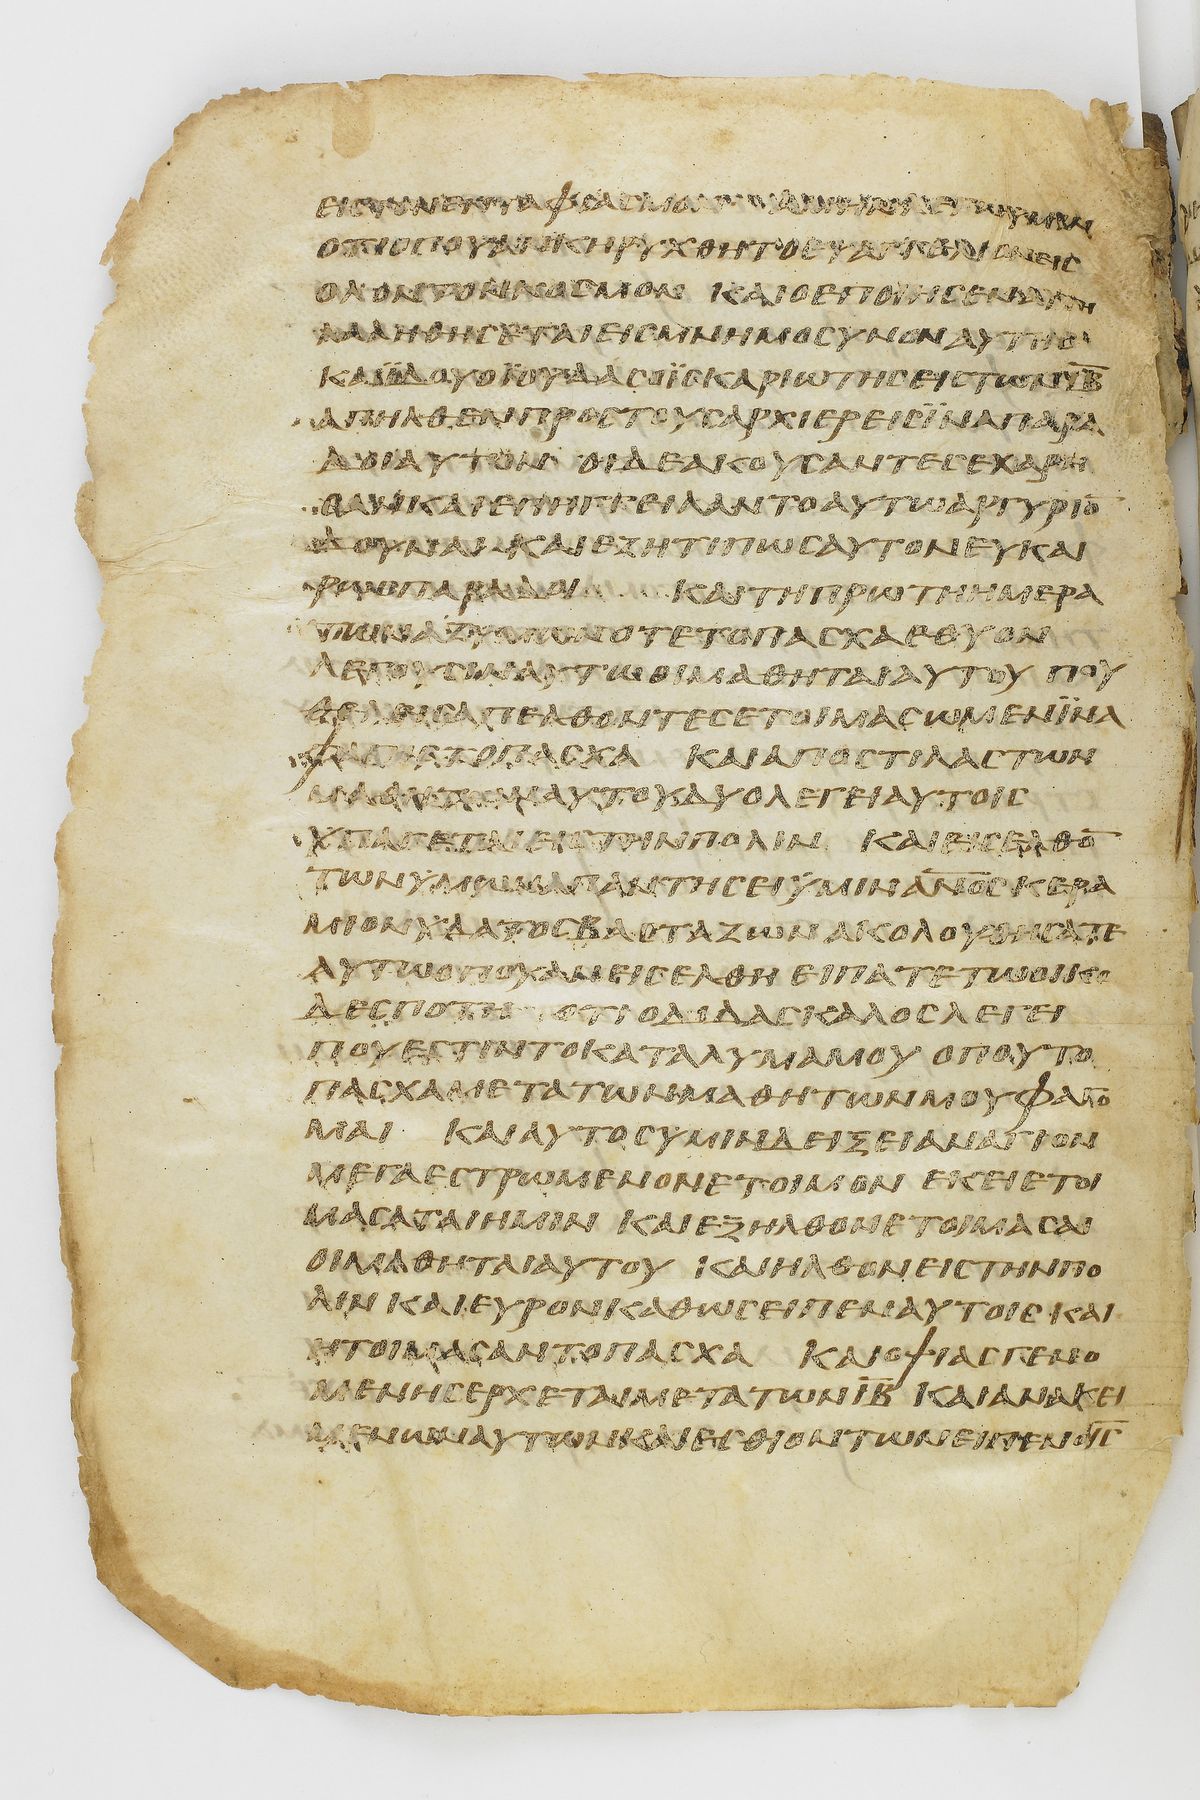 ΕΙCΤΟΝΕΝΤΑΦΙΑCΜΟΝ ΑΜΗΝΛΕΓΩΥΜΙΝ
ΟΤΙΟΠΟΥΑΝΚΗΡΥΧΘΗΤΟΕΥΑΓΓΕΛΙΟΝΕΙC
ΟΛΟΝΤΟΝΚΟCΜΟΝ ΚΑΙΟΕΠΟΙΗCΕΝΑΥΤΗ
ΛΑΛΗΘΗCΕΤΑΙΕΙCΜΝΗΜΟCΥΝΟΝΑΥΤΗC
ΚΑΙΪΔΟΥΟΪΟΥΔΑCΟΪCΚΑΡΙΩΤΗCΕΙCΤΩΝΙ̅Β̅
ΑΠΗΛΘΕΝΠΡΟCΤΟΥCΑΡΧΙΕΡΕΙCΪΝΑΠΑΡΑ
ΔΟΙΑΥΤΟΝ ΟΙΔΕΑΚΟΥCΑΝΤΕCΕΧΑΡΗ
CΑΝΚΑΙΕΠΗΓΓΕΙΛΑΝΤΟΑΥΤΩΑΡΓΥΡΙΟ̅
ΔΟΥΝΑΙ ΚΑΙΕΖΗΤΙΠΩCΑΥΤΟΝΕΥΚΑΙ
ΡΩCΠΑΡΑΔΟΙ ΚΑΙΤΗΠΡΩΤΗΗΜΕΡΑ
ΤΩΝΑΖΥΜΩΝΟΤΕΤΟΠΑCΧΑΕΘΥΟΝ
ΛΕΓΟΥCΙΝΑΥΤΩΟΙΜΑΘΗΤΑΙΑΥΤΟΥ ΠΟΥ
ΘΕΛΕΙCΑΠΕΛΘΟΝΤΕCΕΤΟΙΜΑCΩΜΕΝΪΝΑ
ΦΑΓΗCΤΟΠΑCΧΑ ΚΑΙΑΠΟCΤΙΛΑCΤΩΝ
ΜΑΘΗΤΩΝΑΥΤΟΥΔΥΟΛΕΓΕΙΑΥΤΟΙC
ΥΠΑΓΕΤΕΕΙCΤΗΝΠΟΛΙΝ ΚΑΙΕΙCΕΛΘΟ̅
ΤΩΝΥΜΩΝΑΠΑΝΤΗCΕΙΫΜΙΝΑ̅Ν̅Ο̅C̅ΚΕΡΑ
ΜΙΟΝΥΔΑΤΟCΒΑCΤΑΖΩΝΑΚΟΛΟΥΘΗCΑΤΕ
ΑΥΤΩΟΠΟΥΑΝΕΙCΕΛΘΗ ΕΙΠΑΤΕΤΩΟΙΚΟ
ΔΕCΠΟΤΗ ΟΤΙΟΔΙΔΑCΚΑΛΟCΛΕΓΕΙ
ΠΟΥΕCΤΙΝΤΟΚΑΤΑΛΥΜΑΜΟΥ ΟΠΟΥΤΟ
ΠΑCΧΑΜΕΤΑΤΩΝΜΑΘΗΤΩΝΜΟΥΦΑΓΟ
ΜΑΙ ΚΑΙΑΥΤΟCΥΜΙΝΔΕΙΞΕΙΑΝΑΓΙΟΝ
ΜΕΓΑΕCΤΡΩΜΕΝΟΝΕΤΟΙΜΟΝ ΕΚΕΙΕΤΟΙ
ΜΑCΑΤΑΙΗΜΙΝ ΚΑΙΕΞΗΛΘΟΝΕΤΟΙΜΑCΑΙ
ΟΙΜΑΘΗΤΑΙΑΥΤΟΥ ΚΑΙΗΛΘΟΝΕΙCΤΗΝΠΟ
ΛΙΝΚΑΙΕΥΡΟΝΚΑΘΩCΕΙΠΕΝΑΥΤΟΙCΚΑΙ
ΗΤΟΙΜΑCΑΝΤΟΠΑCΧΑ ΚΑΙΟΨΙΑCΓΕΝΟ
ΜΕΝΗCΕΡΧΕΤΑΙΜΕΤΑΤΩΝΙ̅Β̅ ΚΑΙΑΝΑΚΕΙ
ΜΕΝΩΝΑΥΤΩΝΚΑΙΕCΘΙΟΝΤΩΝΕΙΠΕΝΟΙ̅C̅